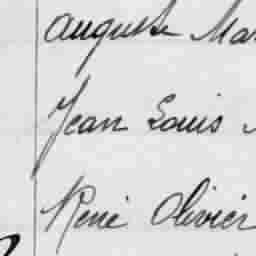 Auguste Mar
Jean Louis
René Olivier